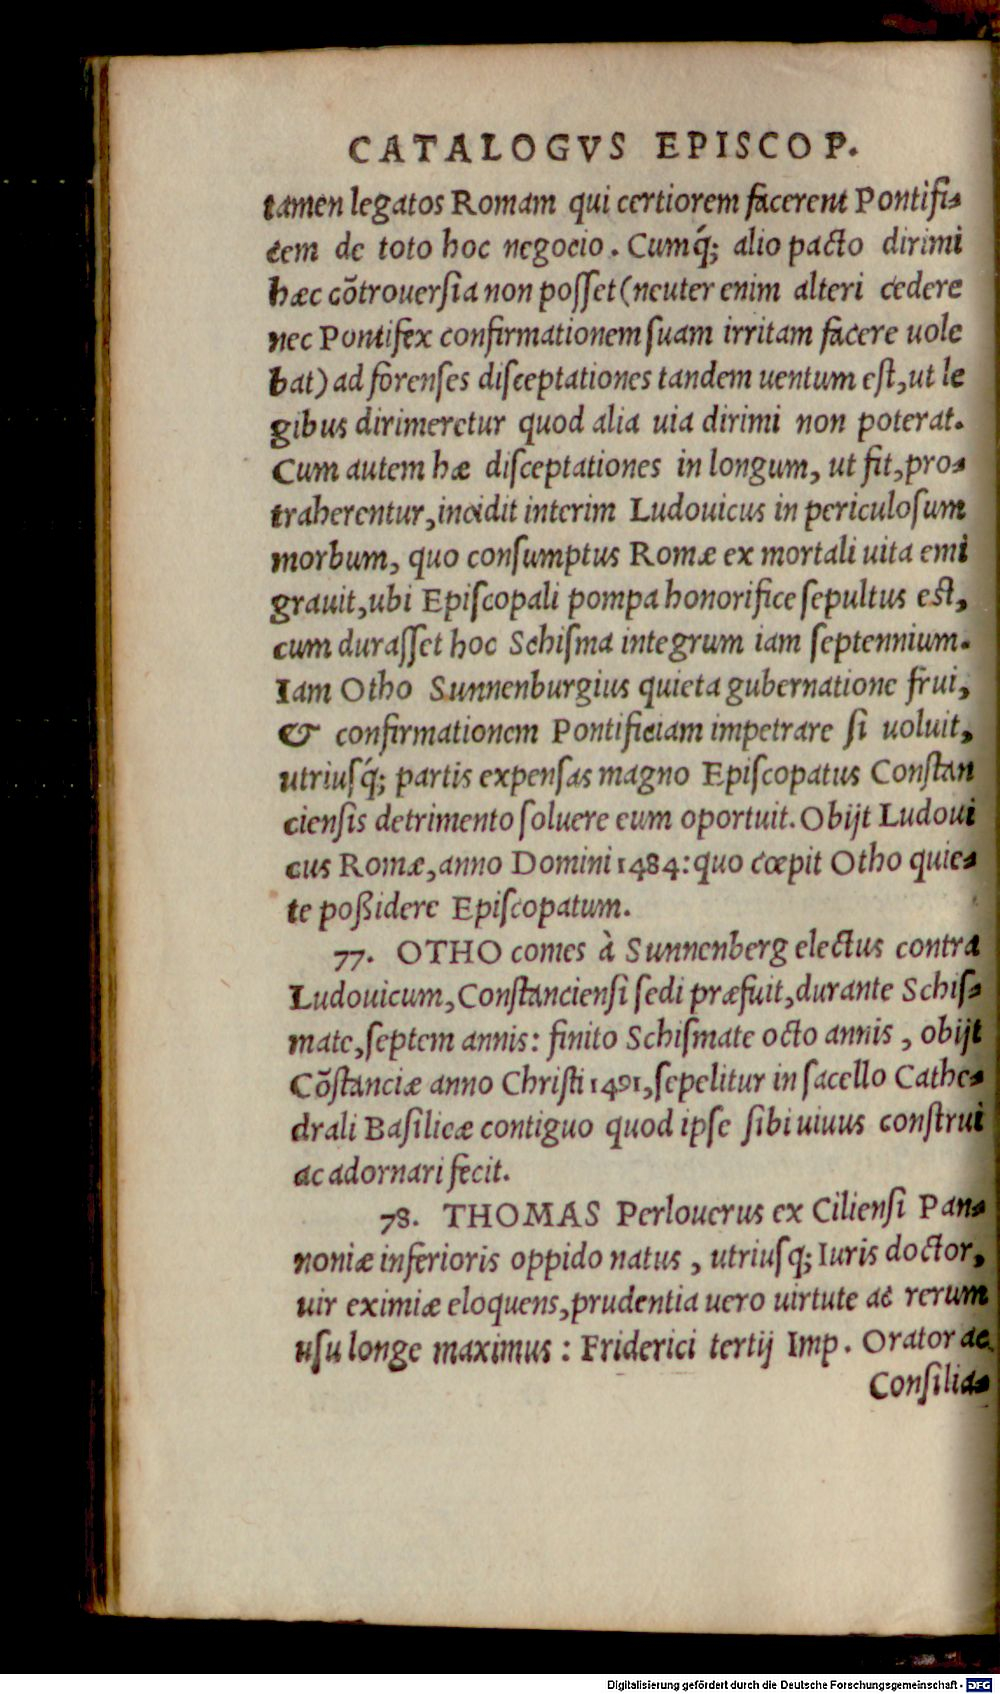 CATALOGVS EPISCOP.
tamen legatos Romam qui certiorem facerent Pontifi-
cem de toto hoc negocio. Cumq́; alio pacto dirimi
hæc cõtrouerſia non poſſet (neuter enim alteri cedere
nec Pontifex confirmationem ſuam irritam facere uole
bat) ad forenſes diſceptationes tandem uentum eſt, ut le
gibus dirimeretur quod alia uia dirimi non poterat.
Cum autem hæ diſceptationes in longum, ut fit, pro-
traherentur, incidit interim Ludouicus in periculoſum
morbum, quo conſumptus Romæ ex mortali uita emi
grauit, ubi Epiſcopali pompa honorifice ſepultus eſt,
cum duraſſet hoc Schiſma integrum iam ſeptennium.
Iam Otho Sunnenburgius quieta gubernatione frui,
& confirmationem Pontificiam impetrare ſi uoluit,
utriusq́; partis expenſas magno Epiſcopatus Conſtan
cienſis detrimento ſoluere eum oportuit. Obijt Ludoui
cus Romæ, anno Domini 1484: quo cœpit Otho quie-
te poßidere Epiſcopatum.
77. OTHO comes à Sunnenberg electus contra
Ludouicum, Conſtancienſi ſedi præfuit, durante Schiſ-
mate, ſeptem annis: finito Schiſmate octo annis, obijt
Cõſtanciæ anno Chriſti 1491, ſepelitur in ſacello Cathe-
drali Baſilicæ contiguo quod ipſe ſibi uiuus conſtrui
ac adornari fecit.
78. THOMAS Perlouerus ex Cilienſi Pan-
noniæ inferioris oppido natus, utriuſq; Iuris doctor,
uir eximiæ eloquens, prudentia uero uirtute ac rerum
uſu longe maximus: Friderici tertij Imp. Orator ac
Conſilia-
Digitalisierung gefördert durch die Deutsche Forschungsgemeinschaft - DFG